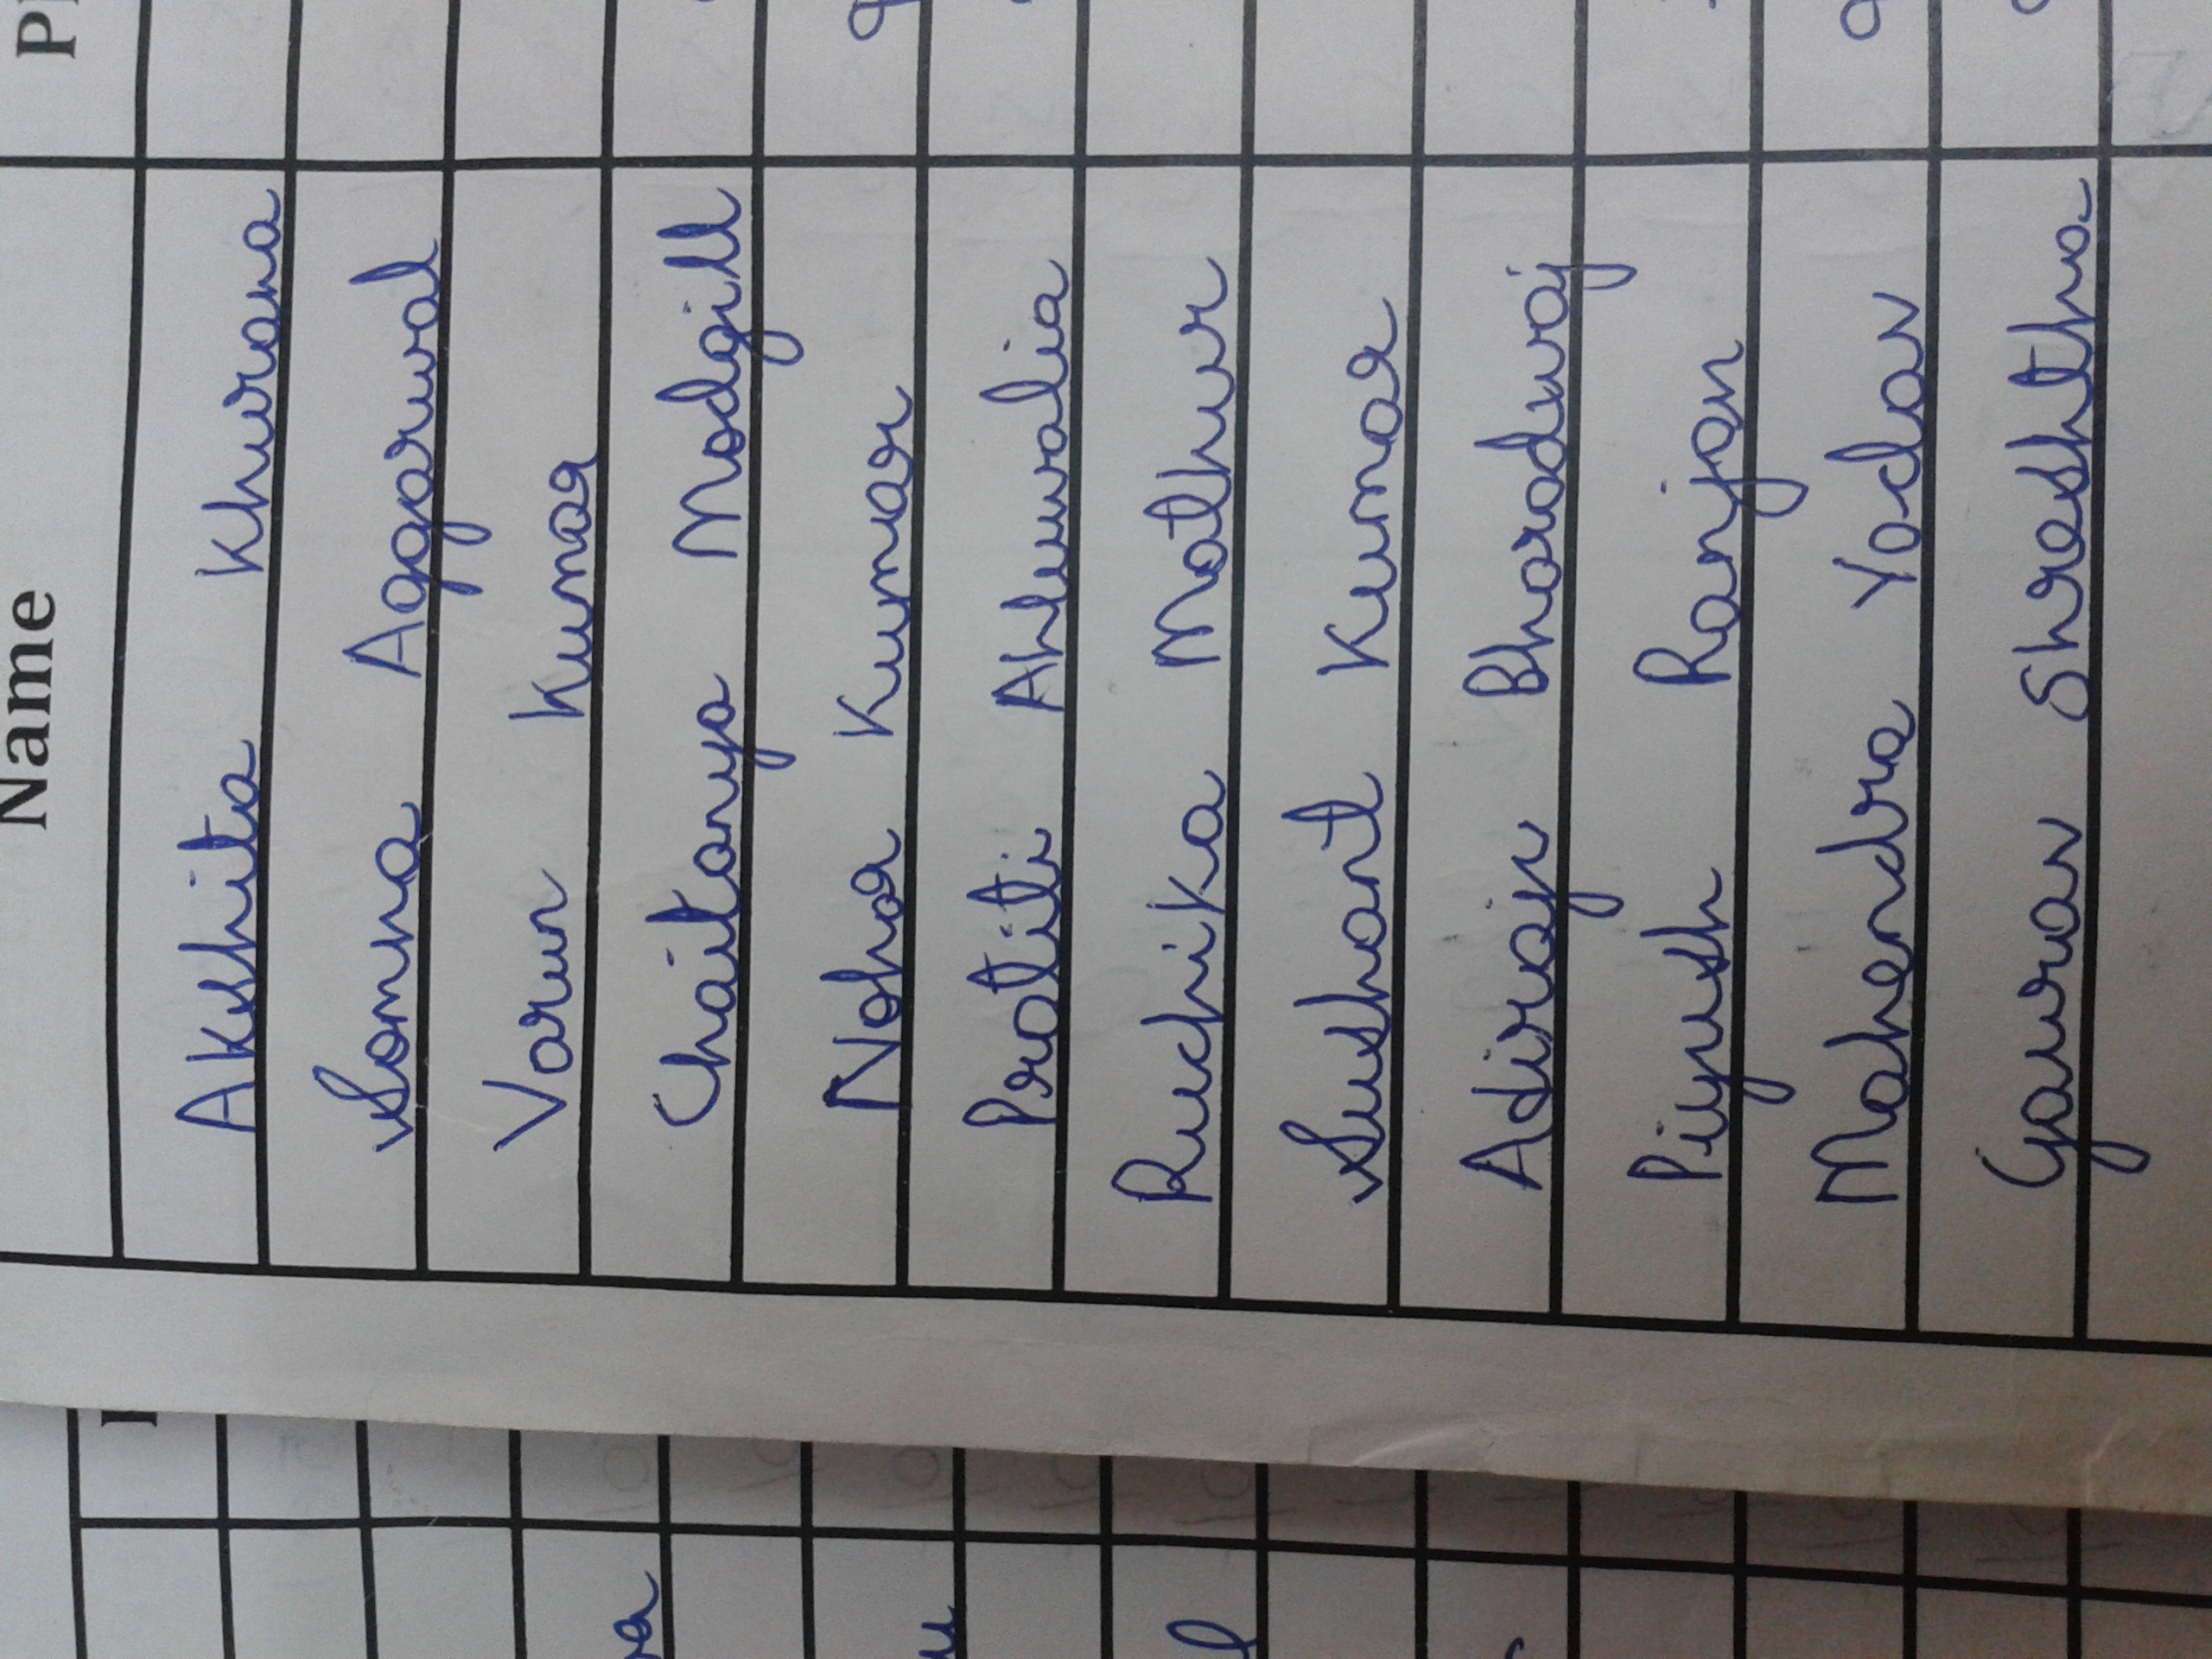 Name
Akshita Khurana
Somna Aggarwal
Varun Kumar
Chaitanya Modgill
Nohar Kumar
Pratiti Ahluwalia
Ruchika Mathur
Sushant Kumar
Adiraju Bharadwaj
Piyush Ranjan
Mahendra Yadav
Gaurav Shreshtha